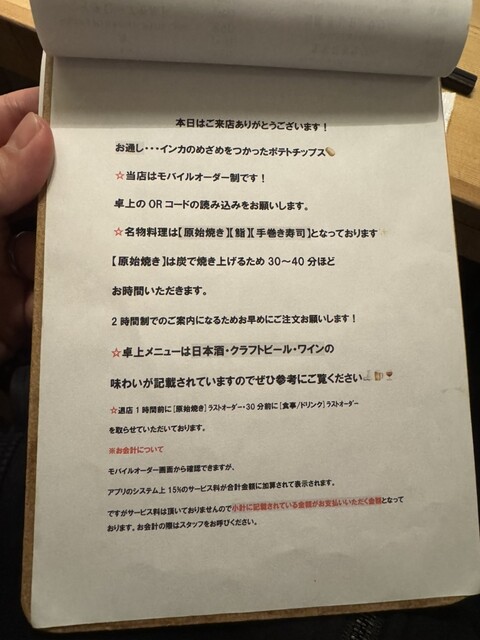 本日はご来店ありがとうございます！
お通し・・・インカのめざめをつかったポテトチップス🥔
☆当店はモバイルオーダー制です！
卓上の QR コードの読み込みをお願いします。
☆名物料理は【原始焼き】【鮨】【手巻き寿司】となっております
【原始焼き】は炭で焼き上げるため 30～40 分ほど
お時間いただきます。
2 時間制でのご案内になるためお早めにご注文お願いします！
☆卓上メニューは日本酒・クラフトビール・ワインの
味わいが記載されていますのでぜひ参考にご覧ください🍶🍺🍷
☆退店 1 時間前に［原始焼き］ラストオーダー・30 分前に［食事/ドリンク］ラストオーダー
を取らせていただいております。
※お会計について
モバイルオーダー画面から確認できますが、
アプリのシステム上 15%のサービス料が合計金額に加算されて表示されます。
ですがサービス料は頂いておりませんので小計に記載されている金額がお支払いいただく金額となって
おります。お会計の際はスタッフをお呼びください。